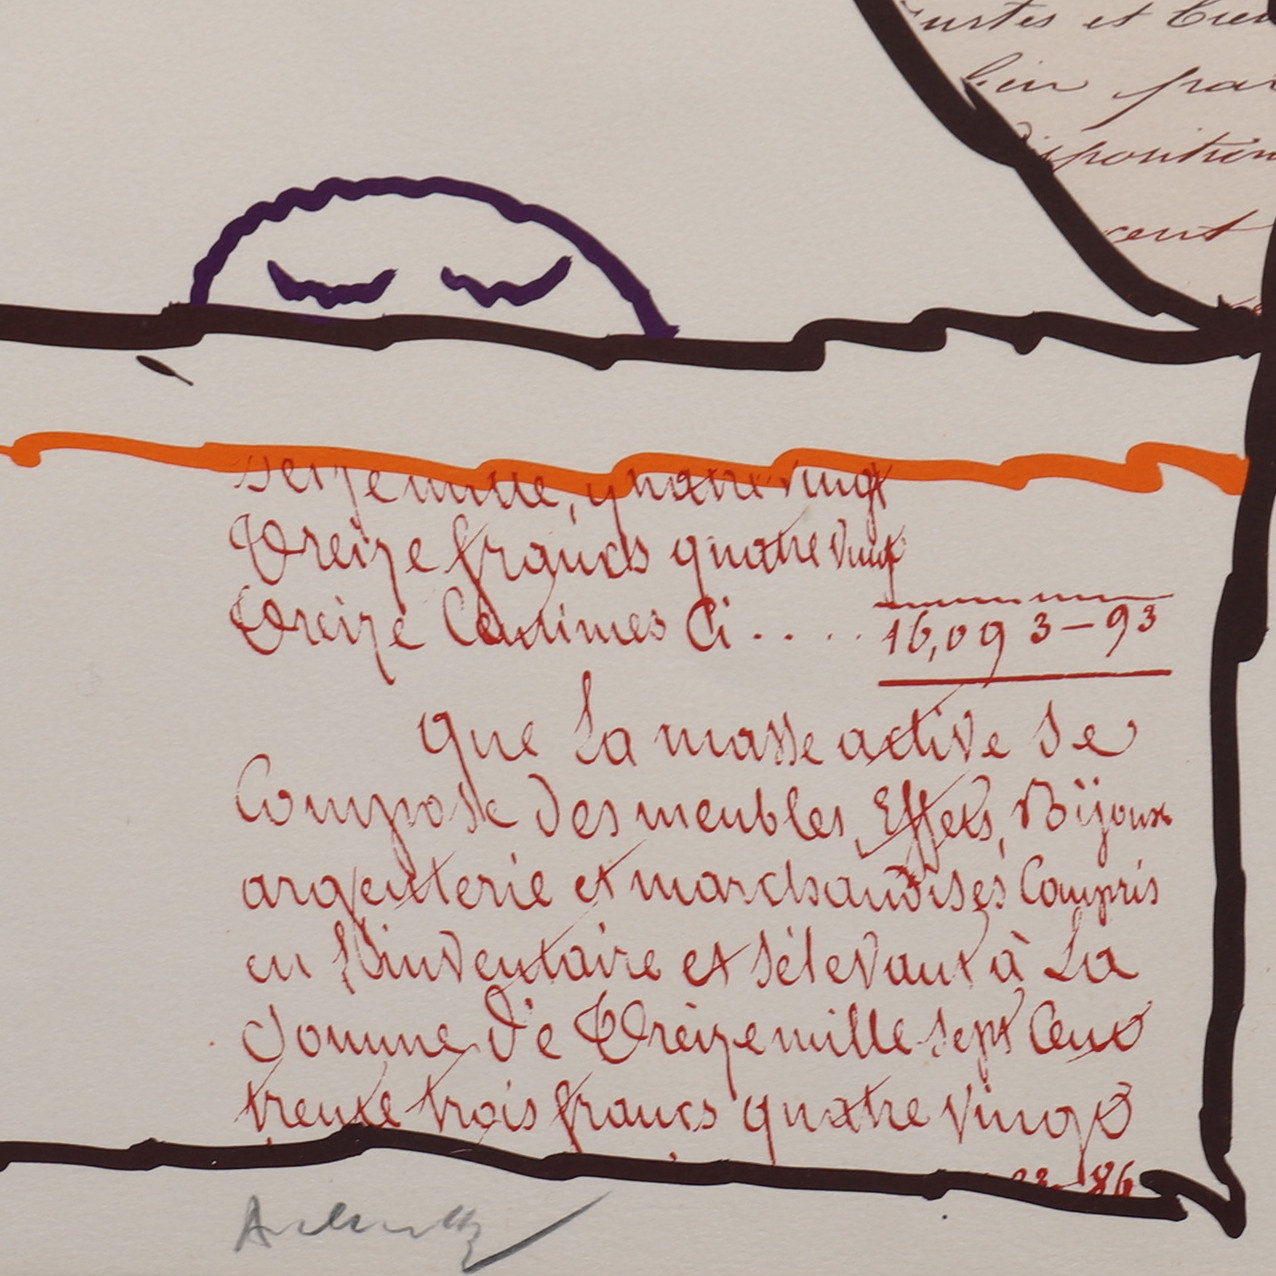 ustes et bien
bien par
disposition
cent
Seize mille, quatre vingt
Treize francs quatre vingt
Treize Centimes Ci . . . . 16,093-93
que La masse active Se
Compose des meubles, Effets, Bijoux
argenterie et marchandises Compris
en L'inventaire et s'élevant à La
Somme de Treize mille sept Cent
trente trois francs quatre vingt
86